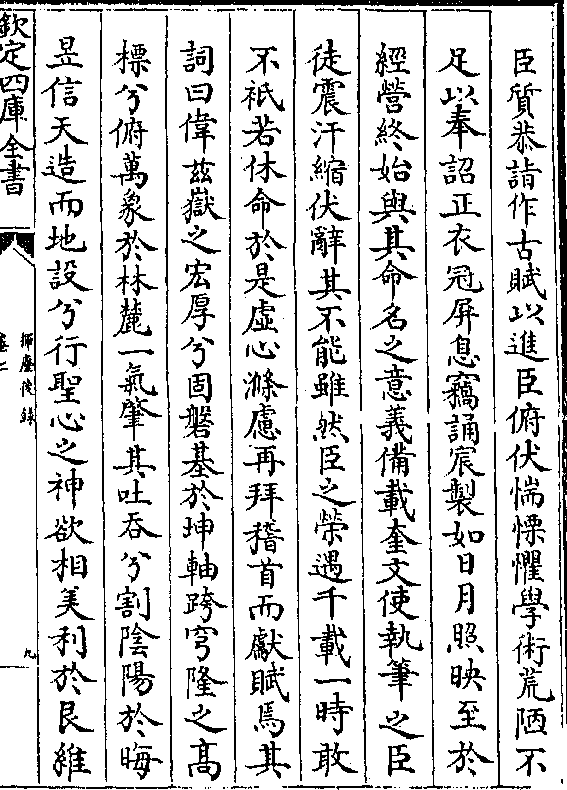 臣質恭詣作古賦以進臣俯伏惴慄懼學術荒陋不
足以奉詔正衣冠屏息竊誦宸製如日月照映至於
經營終始與其命名之意義備載奎文使執筆之臣
徒震汗縮伏辭其不能雖然臣之榮遇千載一時敢
不祇若休命於是虛心滌慮再拜稽首而獻賦焉其
詞曰偉茲嶽之宏厚兮固磐基於坤軸跨穹隆之高
標兮俯萬象於林麓一氣肇其吐吞兮割陰陽於晦
昱信天造而地設兮行聖心之神欲相美利於艮維
欽定四庫全書
揮麈後錄
卷二
九